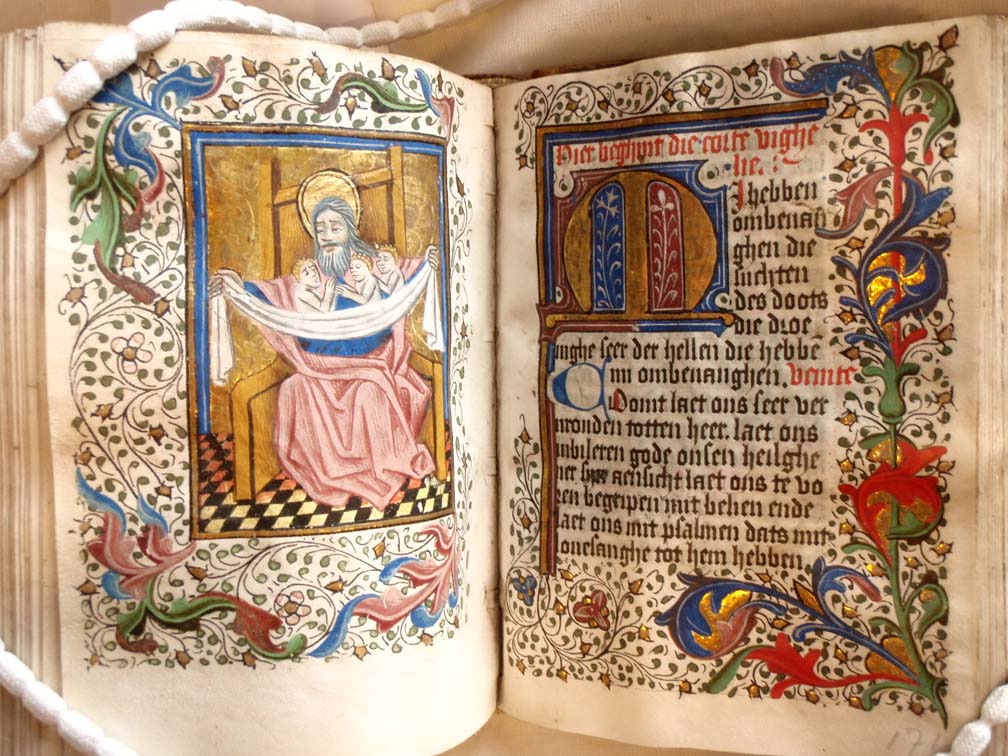 Hier beghint die corte vighe
lie. :
MI hebben
ombevaň
ghen die
suchten
des doots
die droe
nighe seer der hellen die hebbē
mi ombevanghen. Venite
Comt laet ons seer ver
vrouden totten heer. laet ons
iubileren gode onsen heilghe
ver aensicht laet ons te vo
ren begripen mit belien ende
laet ons mit psalmen dats mit
onesanghe tot hem hebben